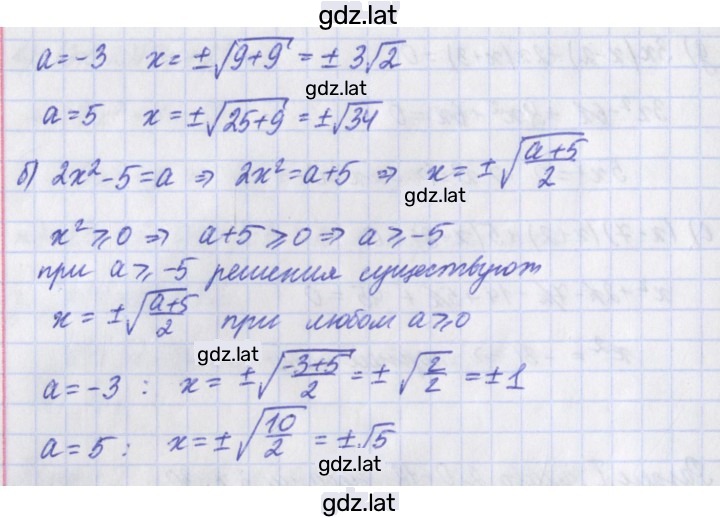 gdz.lat
a=-3 x=±√(9+9)=±3√2
gdz.lat
a=5 x=±√(25+9)=±√34
б) 2x²-5=a ⇒ 2x²=a+5 ⇒ x=±√((a+5)/2)
gdz.lat
x²⩾0 ⇒ a+5⩾0 ⇒ a⩾-5
при a⩾-5 решения существуют
x=±√((a+5)/2) при любом a⩾0
gdz.lat
a=-3: x=±√((-3+5)/2)=±√(2/2)=±1
a=5: x=±√(10/2)=±√5
gdz.lat
gdz.lat